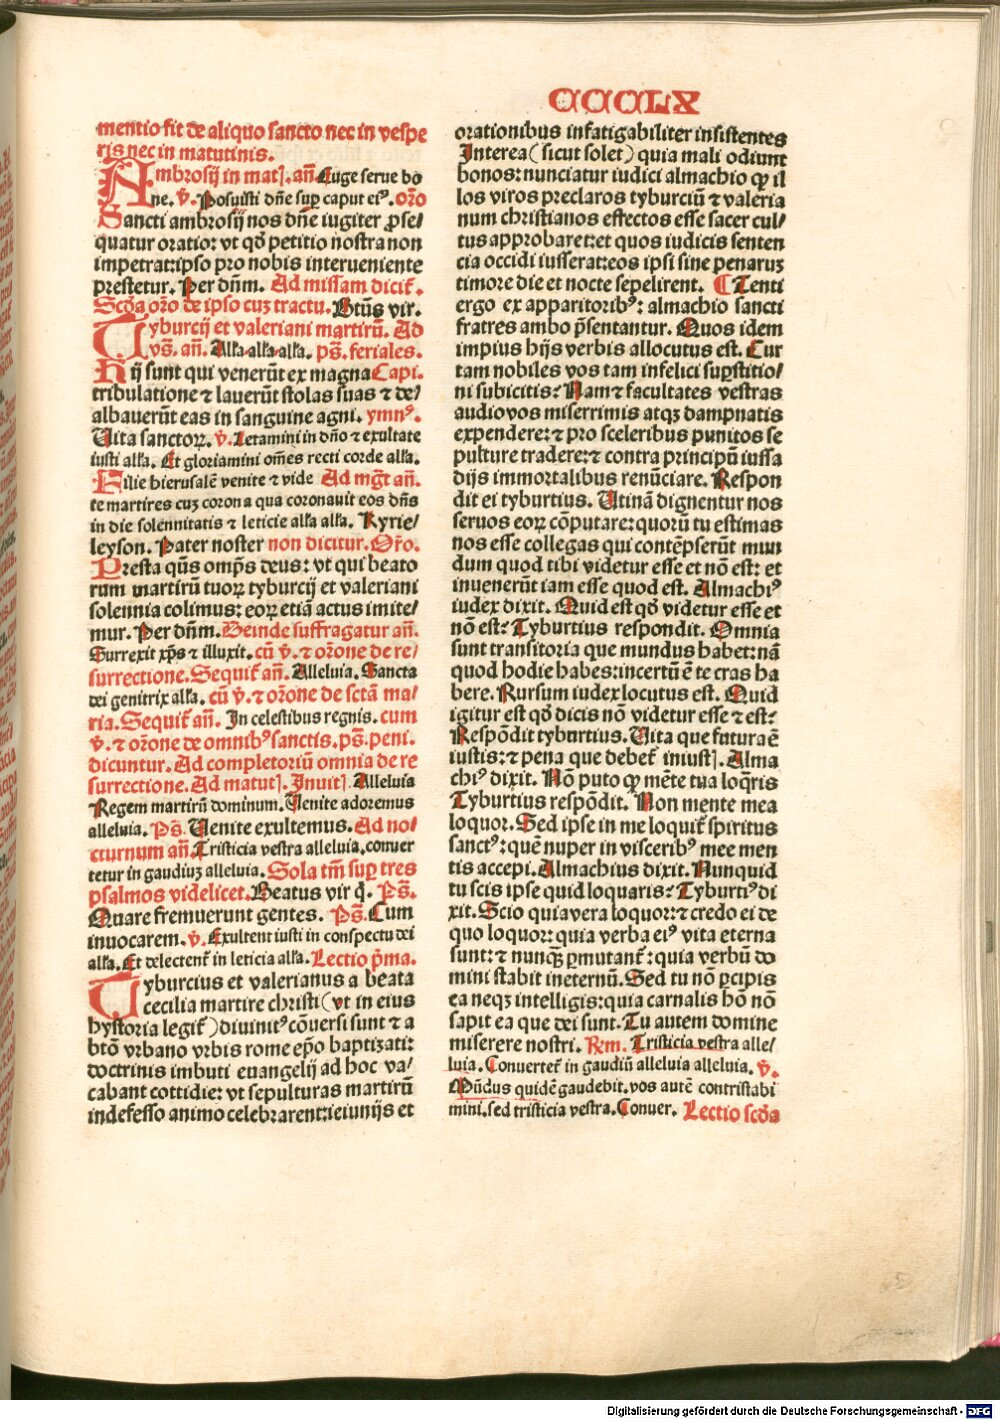 CCCCLX
mentio fit de aliquo sancto nec in vespe
ris nec in matutinis.
Ambrosij in matĮ. añ. Euge serue bo
ne. v̄. Posuisti dñe suꝑ caput eiꝰ. orõ
Sancti ambrosij nos dñe iugiter ꝓse/
quatur oratio: vt qđ petitio nostra non
impetrat: ipso pro nobis interueniente
prestetur. Per dñm. Ad missam dicit̃.
Scđa orõ de ipso cuꝫ tractu. Btũs vir.
Tyburcij et valeriani martirũ. Ad
vs̃. añ. Alľa alľa alľa. ps̃. feriales.
Hij sunt qui venerũt ex magna Capi.
tribulatione ⁊ lauerũt stolas suas ⁊ de/
albauerũt eas in sanguine agni. ymnꝰ.
Vita sanctoꝝ. v̄. Letamini in dño ⁊ exultate
iusti alľa. Et gloriamini om̃es recti corde alľa.
Filie hierusalẽ venite ⁊ vide Ad mg̃t añ.
te martires cuꝫ corona qua coronauit eos dñs
in die solennitatis ⁊ leticie alľa alľa. Kyrie/
leyson. Pater noster non dicitur. Oro̅.
Presta qũs omp̃s deus: vt qui beato
rum martirũ tuoꝝ tyburcij et valeriani
solennia colimus: eoꝝ etiã actus imite/
mur. Per dñm. Deinde suffragatur añ.
Surrexit xp̃s ⁊ illuxit. cũ v̄. ⁊ orõne de re/
surrectione. Sequit̃ añ. Alleluia. Sancta
dei genitrix alľa. cũ v̄. ⁊ orõne de sctã ma/
ria. Sequit̃ añ. In celestibus regnis. cum
v̄. ⁊ orõne de omnibꝰ sanctis. ps̃. peni.
dicuntur. Ad completoriũ omnia de re
surrectione. Ad matutĮ. InuitĮ. Alleluia
Regem martirũ dominum. Venite adoremus
alleluia. Ps̃. Venite exultemus. Ad no/
cturnum añ. Tristicia vestra alleluia. conuer
tetur in gaudiuꝫ alleluia. Sola tm̃ suꝑ tres
psalmos videlicet. Beatus vir q̃. Ps̃.
Quare fremuerunt gentes. Ps̃. Cum
inuocarem. v̄. Exultent iusti in conspectu dei
alľa. Et delectent̃ in leticia alľa. Lectio p̃ma.
Tyburcius et valerianus a beata
cecilia martire christi (vt in eius
hystoria legit̃) diuinitꝰ cõuersi sunt ⁊ a
btõ vrbano vrbis rome ep̃o baptizati:
doctrinis imbuti euangelij ad hoc va/
cabant cottidie: vt sepulturas martirũ
indefesso animo celebrarent: ieiunijs et
orationibus infatigabiliter insistentes
Interea (sicut solet) quia mali odiunt
bonos: nunciatur iudici almachio ꝙ il
los viros preclaros tyburciũ ⁊ valeria
num christianos effectos esse sacer cul/
tus approbaret: et quos iudicis senten
cia occidi iusserat: eos ipsi sine penaruꝫ
timore die et nocte sepelirent. ¶ Tenti
ergo ex apparitoribꝰ: almachio sancti
fratres ambo p̃sentantur. Quos idem
impius hijs verbis allocutus est. Cur
tam nobiles vos tam infelici suꝑstitio/
ni subicitis? Nam ⁊ facultates vestras
audio vos miserrimis atqꝫ dampnatis
expendere: ⁊ pro sceleribus punitos se
pulture tradere: ⁊ contra principũ iussa
dijs immortalibus renũciare. Respon
dit ei tyburtius. Vtinã dignentur nos
seruos eoꝝ cõputare: quorũ tu estimas
nos esse collegas qui contẽpserũt mun
dum quod tibi videtur esse et nõ est: et
inuenerũt iam esse quod est. Almachiꝰ
iudex dixit. Quid est qđ videtur esse et
nõ est? Tyburtius respondit. Omnia
sunt transitoria que mundus habet: nã
quod hodie habes: incertũ ẽ te cras ha
bere. Rursum iudex locutus est. Quid
igitur est qđ dicis nõ videtur esse ⁊ est?
Respõdit tyburtius. Vita que futura ẽ
iustis: ⁊ pena que debet̃ iniustĮ. Alma
chiꝰ dixit. Nõ puto ꝙ mẽte tua loq̃ris
Tyburtius respõdit. Non mente mea
loquor. Sed ipse in me loquit̃ spiritus
sanctꝰ: quẽ nuper in visceribꝰ mee men
tis accepi. Almachius dixit. Nunquid
tu scis ipse quid loquaris? Tyburtiꝰ di
xit. Scio quia vera loquor: ⁊ credo ei de
quo loquor: quia verba eiꝰ vita eterna
sunt: ⁊ nunqꝫ̃ ꝑmutant̃: quia verbũ do
mini stabit in eternũ. Sed tu nõ ꝑcipis
ea neqꝫ intelligis: quia carnalis hõ nõ
sapit ea que dei sunt. Tu autem domine
miserere nostri. Rm. Tristicia vestra alle/
luia. Conuertet̃ in gaudiũ alleluia alleluia. v̄.
Mũdus quidẽ gaudebit. vos autẽ contristabi
mini. sed tristicia vestra. Conuer. Lectio scđa
Digitalisierung gefördert durch die Deutsche Forschungsgemeinschaft - DFG